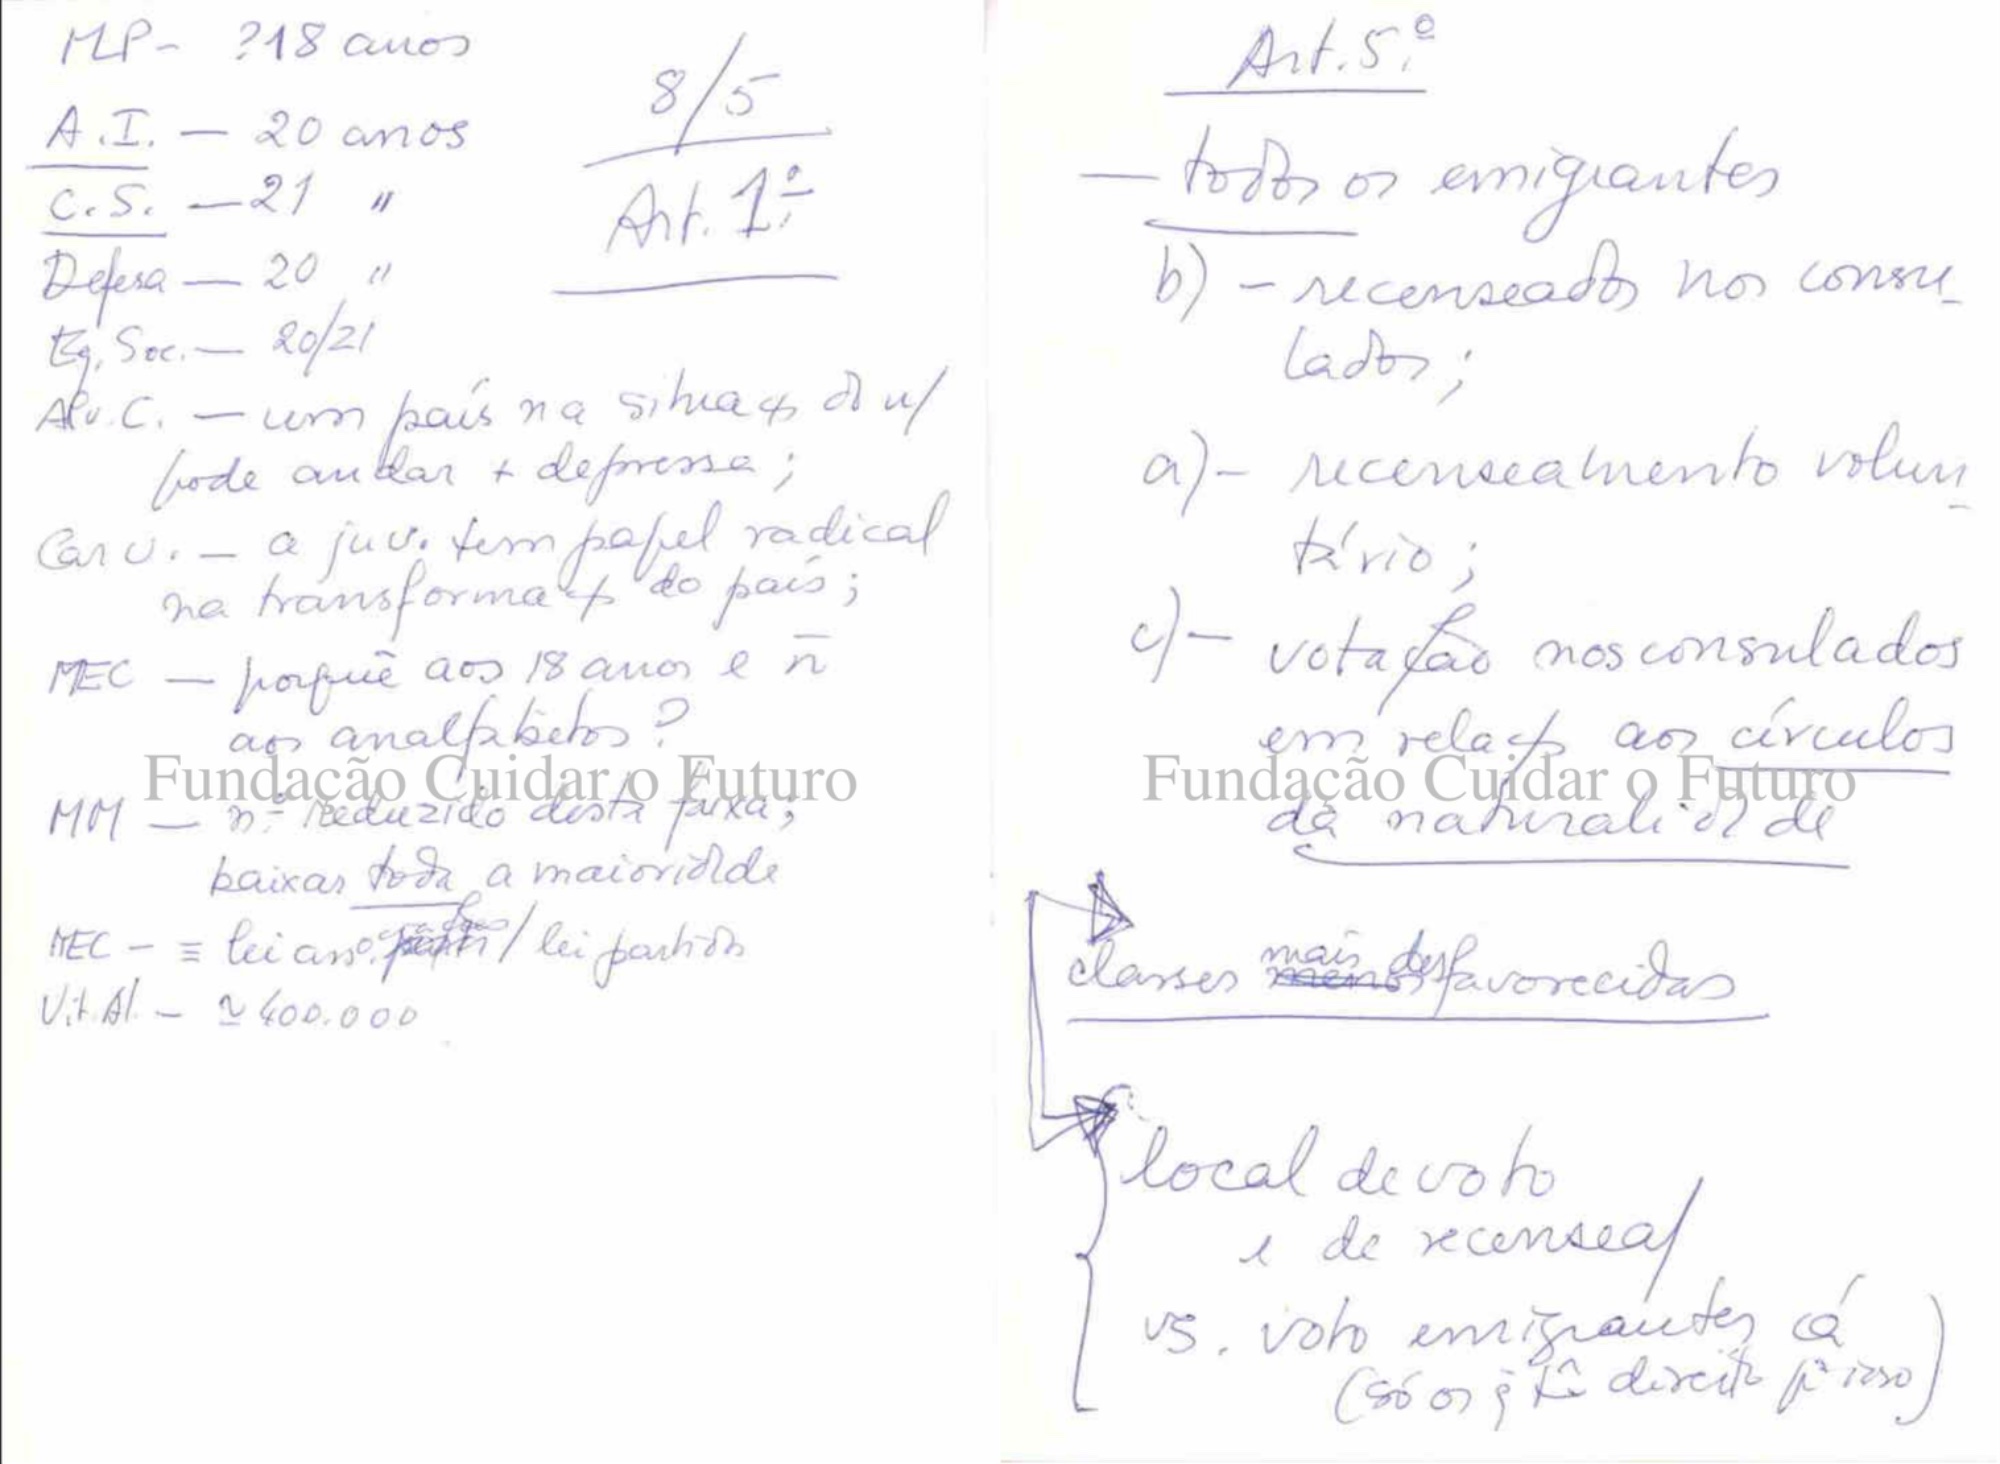 MP - ?18 anos
8/5
A.I. — 20 anos
Art. 1º
C.S. — 21 "
Defesa — 20 "
Eq. Soc. — 20/21
Alv. C. — um país na situaç
pode andar + depressa;
Car v. — a juv. tem papel radical
na transformaç do país;
MEC — porquê aos 18 anos e n̄
aos analfabetos?
Fundação Cuidar o Futuro
MM — nº reduzido desta faixa;
baixar toda a maioridade
MEC - ≡ lei ass. / lei partidos
Vit. Al. - ≃ 400.000
Art. 5.º
— todos os emigrantes
b) - recenseados nos consu-
lados;
a) - recenseamento volun-
tário;
c) - votação nos consulados
em relaç aos círculos
Fundação Cuidar o Futuro
da naturalidade
classes mais desfavorecidas
local de voto
e de recensea/
vs. voto emigrantes cá
(só os q tê direito pª isso)